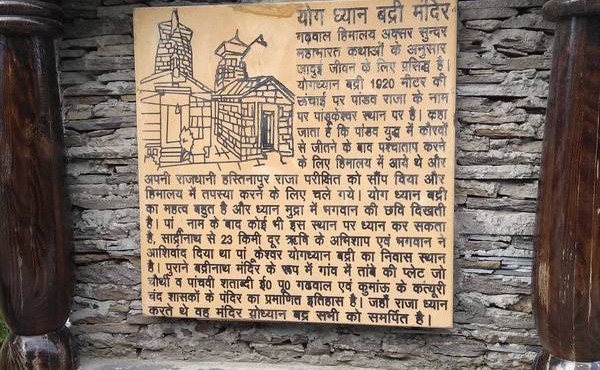 योग ध्यान बद्री मंदिर
गढ़वाल हिमालय अक्सर सुन्दर
महाभारत कथाओं के अनुसार
जादुई जीवन के लिए प्रसिद्ध है।
योगध्यान बद्री 1920 मीटर की
ऊंचाई पर पांडव राजा के नाम
पर पांडुकेश्वर स्थान पर है। कहा
जाता है कि पांडव युद्ध में कौरवों
से जीतने के बाद पश्चाताप करने
के लिए हिमालय में आये थे और
अपनी राजधानी हस्तिनापुर राजा परीक्षित को सौंप दिया और
हिमालय में तपस्या करने के लिए चले गये। योग ध्यान बद्री
का महत्व बहुत है और ध्यान मुद्रा में भगवान की छवि दिखती
है। पां नाम के बाद कोई भी इस स्थान पर ध्यान कर सकता
है, साद्रीनाथ से 23 किमी दूर ऋषि के अभिशाप एवं भगवान ने
आशिर्वाद दिया था पां केश्वर योगध्यान बद्री का निवास स्थान
है। पुराने बद्रीनाथ मंदिर के रूप में गांव में तांबे की प्लेट जो
चौथी व पांचवी शताब्दी ई0 पू0 गढवाल एवं कुमाऊ के कत्यूरी
चंद शासकों के पंदिर का प्रमाणित इतिहास है। जहाँ राजा ध्यान
करते थे वह मंदिर योध्यान बद्र सभी को समर्पित है।